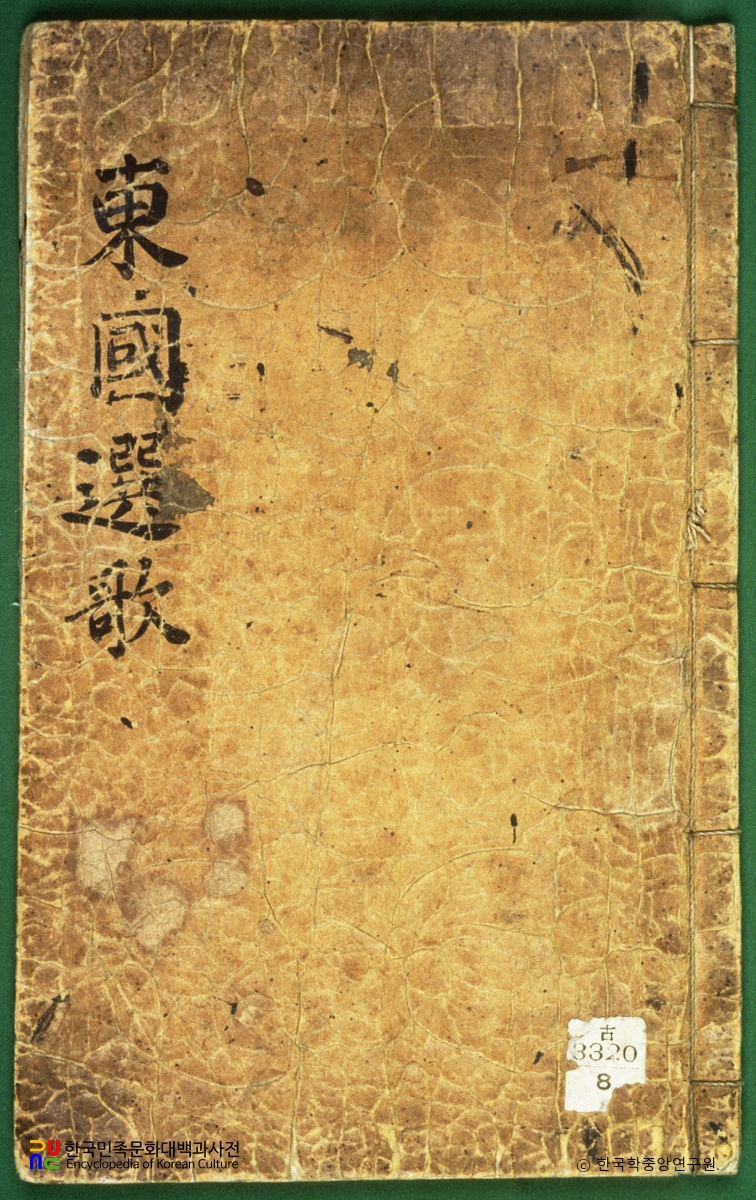 東國選歌
古
3320
8
한국민족문화대백과사전
Encyclopedia of Korean Culture
© 한국학중앙연구원.